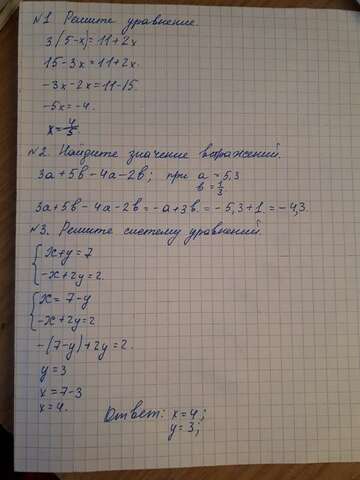 №1. Решите уравнение.
3(5-x)=11+2x
15-3x=11+2x.
-3x-2x=11-15.
-5x=-4.
x=4/5
№2. Найдите значение выражений.
3a+5в-4a-2в; при a=5,3
в=1/3.
3a+5в-4a-2в=-a+3в.=-5,3+1.=-4,3.
№3. Решите систему уравнений.
{x+y=7
-x+2y=2.
{x=7-y
-x+2y=2
-(7-y)+2y=2.
y=3
x=7-3
x=4.
Ответ: x=4;
y=3;